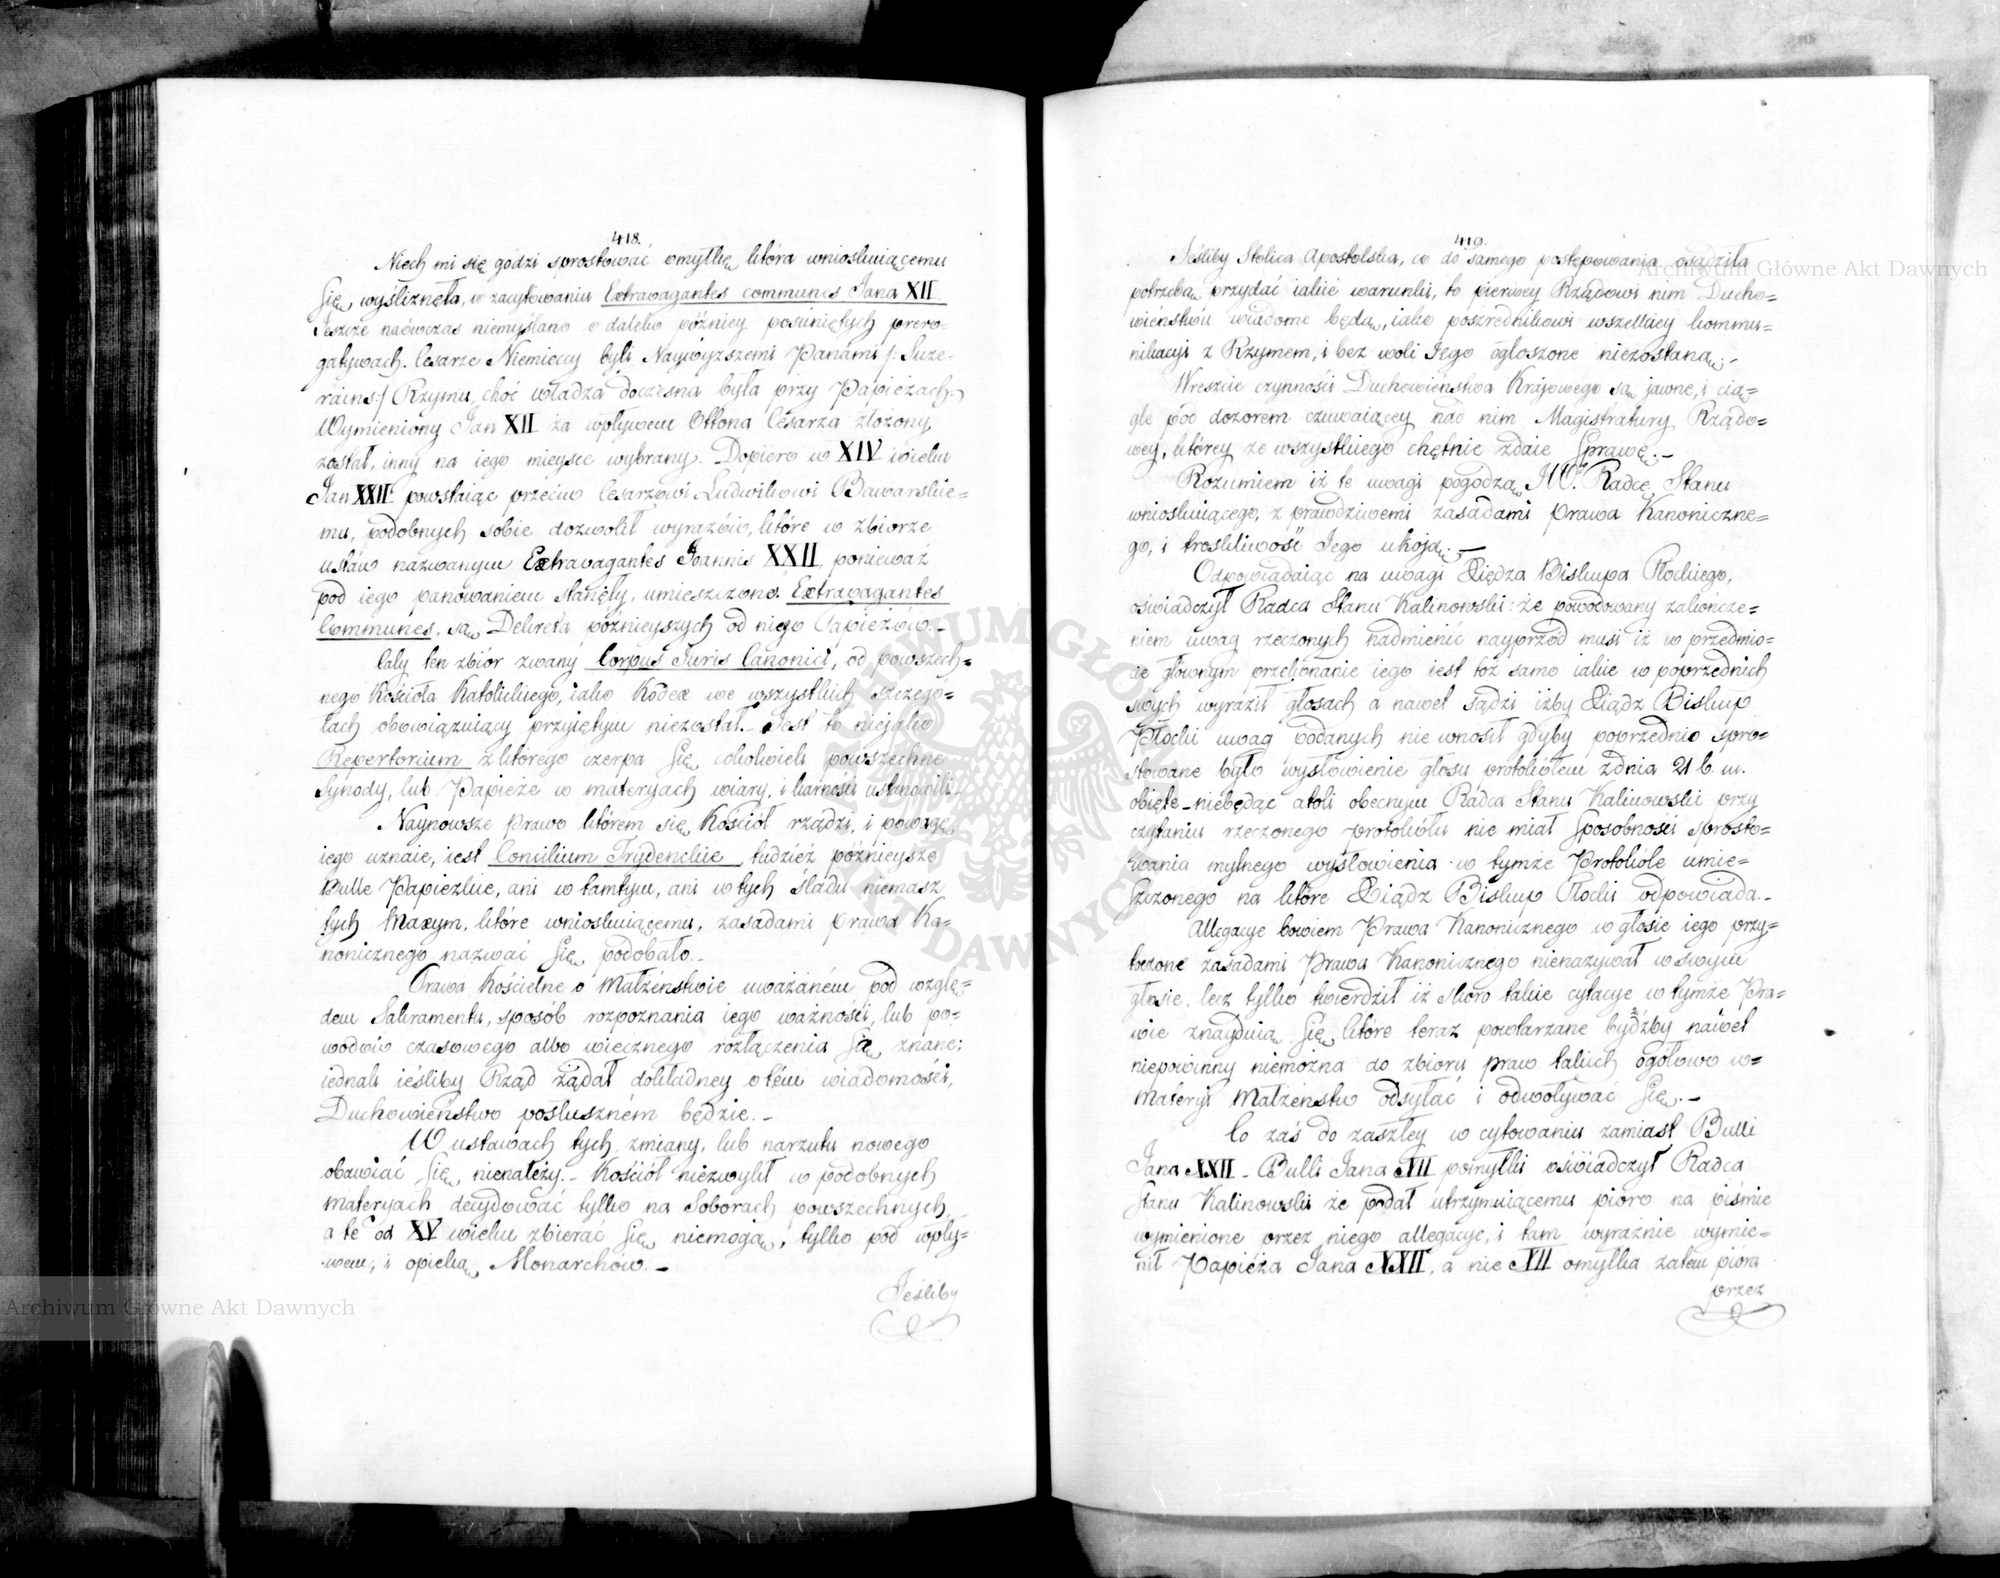 418.
Niech mi się godzi sprostować omyłkę która wnioskuiącemu
się wyśliznęła, w zacytowaniu Extravagantes communes Jana XII.
Jeszcze naówczas niemyślano o daleko później posuniętych prero=
gatywach. Cesarze Niemieccy byli Naywyższemi Panami /: Suze=
rains:/ Rzymu, choć władza doczesna była przy Papieżach.
Wymieniony Jan XII za wpływem Ottona Cesarza złożony
został, inny na iego mieysce wybrany. Dopiero w XIV wieku
Jan XXII powstaiąc przeciw Cesarzowi Ludwikowi Bawarskie=
mu, podobnych sobie dozwolił wyrazów, które w zbiorze
ustaw nazwanym Extravagantes Joannis XXII, ponieważ
pod iego panowaniem stanęły, umieszczono. Extravagantes
Communes, są Dekreta późnieyszych od niego Papieżów.–
Cały ten zbiór zwany Corpus Juris Canonici, od powszech=
nego Kościoła Katolickiego, iako Kodex we wszystkich szczegó=
łach obowiązuiący przyiętym niezostał.– Jest to nieiako
Repertorium z którego czerpa się, cokolwiek powszechne
Synody, lub Papieże w materyach wiary, i karności ustanowili.–
Naynowsze prawo którem się Kościół rządzi, i powagę
iego uznaie, iest Concilium Trydenckie, tudzież późnieysze
Bulle Papiezkie, ani w tamtym, ani w tych śladu niemasz
tych Maxym, które wnioskuiącemu, zasadami prawa Ka=
nonicznego nazwać się podobało.–
Prawa Kościelne o Małżeństwie uważaném pod wzglę=
dem Sakramentu, sposób rozpoznania iego ważności, lub po=
wodów czasowego albo wiecznego rozłączenia są znane;
iednak ieśliby Rząd żądał dokładney o tém wiadomości,
Duchowieństwo posłuszném będzie.–
W ustawach tych, zmiany, lub narzutu nowego
obawiać się, nienależy.– Kościół niezwykł w podobnych
materyach decydować tylko na Soborach powszechnych,
a te od XV wieku zbierać się niemogą, tylko pod wpły=
wem, i opieką Monarchów.–
Jeśliby
419.
Jeśliby Stolica Apostolska, co do samego postępowania osądziła
potrzebą przydać iakie warunki, to pierwey Rządowi nim Ducho=
wieństwu wiadome będą, iako pośrednikowi wszelkiey kommu=
nikacyi z Rzymem, i bez woli Jego ogłoszone niezostaną.–
Wreszcie czynności Duchowieństwa Krajowego są jawne, i cią=
gle pod dozorem czuwaiącey nad nim Magistratury Rządo=
wey, którey ze wszystkiego chętnie zdaie Sprawę.–
Rozumiem iż te uwagi pogodzą JW. Radcę Stanu
wnioskuiącego, z prawdziwemi zasadami prawa Kanoniczne=
go, i troskliwość Jego ukoją.–
Odpowiadaiąc na uwagi Xiędza Biskupa Płockiego,
oświadczył Radca Stanu Kalinowski: że powodowany zakończe=
niem uwag rzeczonych nadmienić nayprzód musi iż w przedmio=
cie głównym przekonanie iego iest toż samo iakie w poprzednich
swych wyraził głosach a nawet sądzi iżby Xiądz Biskup
Płocki uwag podanych nie wnosił gdyby poprzednio spro=
stowane było wysłowienie głosu protokółem z dnia 21 b. m.
obięte – niebędąc atoli obecnym Radca Stanu Kalinowski przy
czytaniu rzeczonego protokółu nie miał sposobności sprosto=
wania mylnego wysłowienia w tymże Protokóle umie=
szczonego na które Xiądz Biskup Płocki odpowiada.–
Allegacye bowiem Prawa Kanonicznego w głosie iego przy=
toczone zasadami Prawa Kanonicznego nienazywał w swym
głosie, lecz tylko twierdził iż skoro takie cytacye w tymże Pra=
wie znayduią się, które teraz powtarzane bydźby nawet
niepowinny niemożna do zbioru praw takich ogółowo w=
materyi Małżeństw odsyłać i odwoływać się.–
Co zaś do zaszłey w cytowaniu zamiast Bulli
Jana XXII – Bulli Jana XII pomyłki oświadczył Radca
Stanu Kalinowski że podał utrzymuiącemu pióro na piśmie
wymienione przez niego allegacye, i tam wyraźnie wymie=
nił Papieża Jana XXII, a nie XII omyłka zatem pióra
przez
Archiwum Główne Akt Dawnych
Archiwum Główne Akt Dawnych
ARCHIWUM GŁÓWNE AKT DAWNYCH